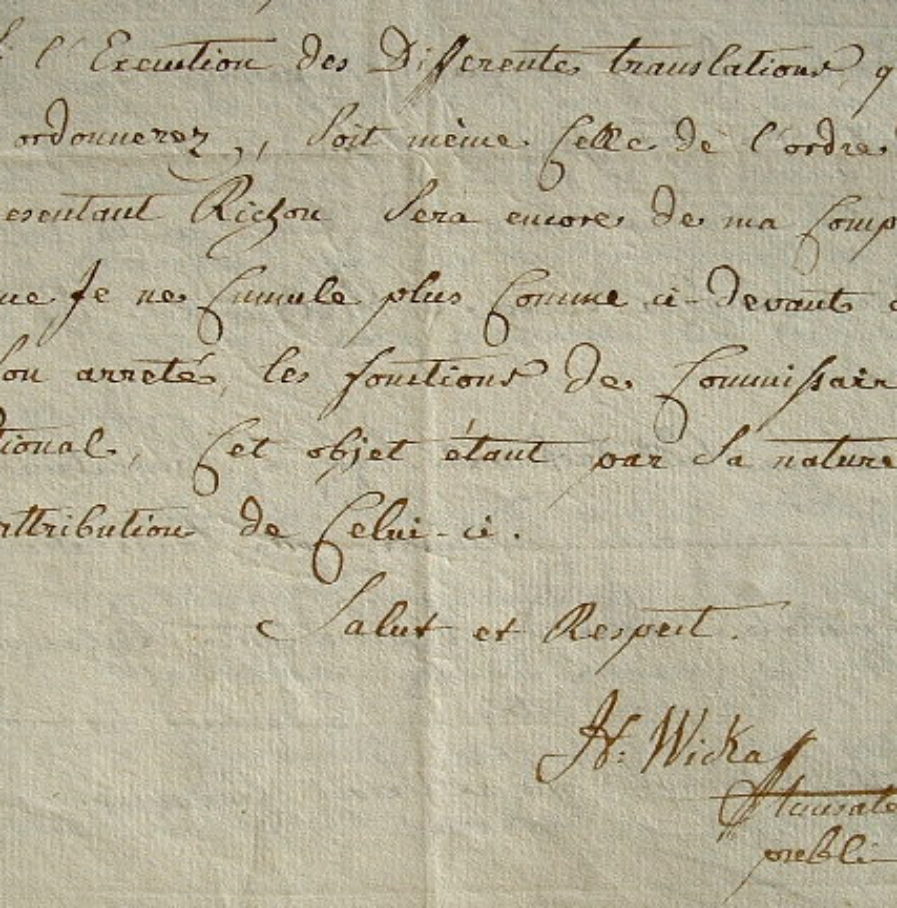 l'Execution des Differentes translations q
ordonnerez, Soit même Celle de l'ordre
esentant Richou Sera encore de ma Comp
ue Je ne Cumule plus Comme ci-devant
son arreté, les fonctions de Commissair
tional, Cet objet étant par Sa nature
attribution de Celui-ci.
Salut et Respect.
H: Wicka
publi